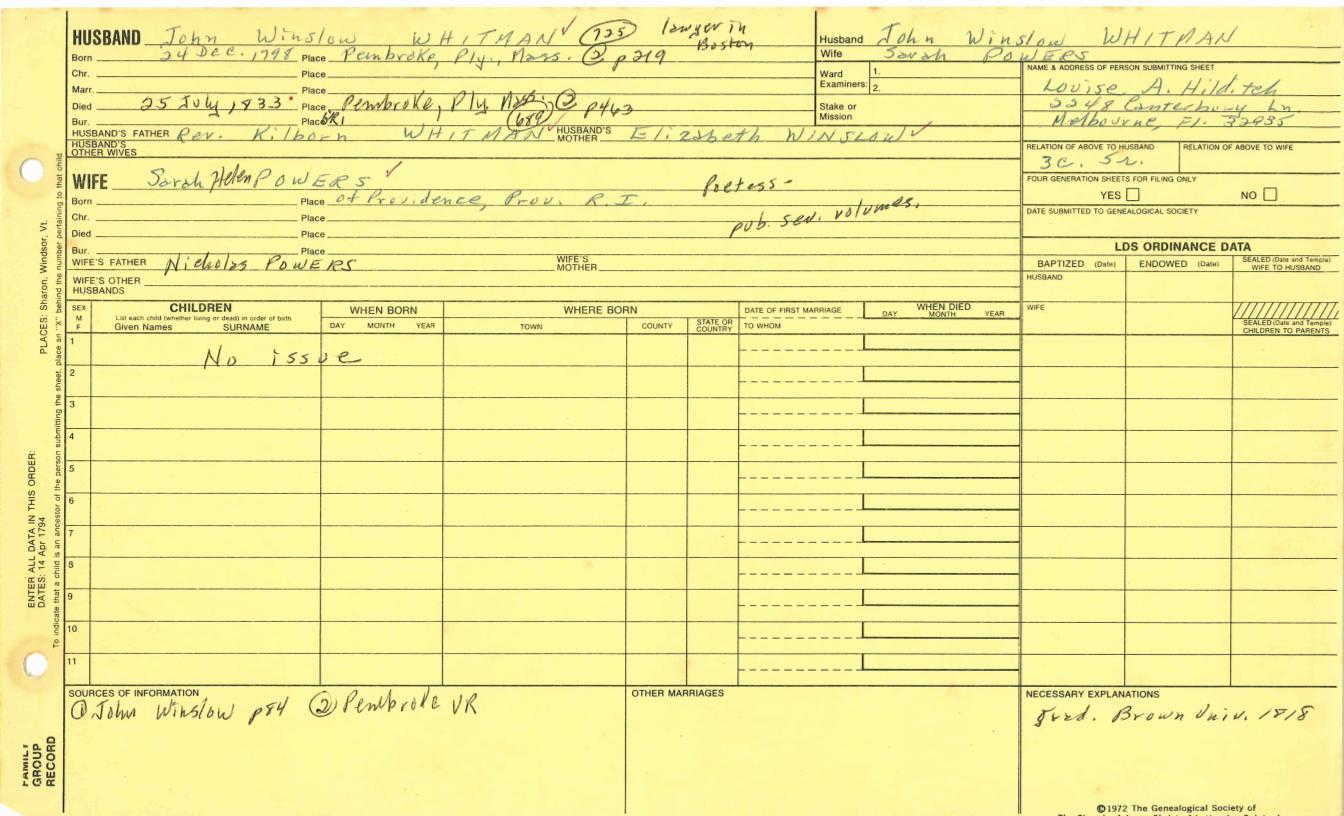 HUSBAND John Winslow WHITMAN ✓ 725 lawyer in Boston
Born 24 Dec. 1798 Place Pembroke, Ply., Mass. ② p219
Chr. Place
Marr. Place
Died 25 July 1833 Place Pembroke, Ply Mass. ② p463
Bur. Place 689
HUSBAND'S FATHER Rev. Kilborn WHITMAN ✓ HUSBAND'S MOTHER Elizabeth WINSLOW ✓
HUSBAND'S OTHER WIVES
WIFE Sarah Helen POWERS ✓ Poetess -
Born Place of Providence, Prov. R.I.
pub. sev. volumes.
Chr. Place
Died Place
Bur. Place
WIFE'S FATHER Nicholas POWERS WIFE'S MOTHER
WIFE'S OTHER HUSBANDS
Husband John Winslow WHITMAN
Wife Sarah POWERS
Ward Examiners: 1.
2.
Stake or Mission
NAME & ADDRESS OF PERSON SUBMITTING SHEET
Louise A. Hilditch
2248 Canterbury Ln.
Melbourne, Fl. 32935
RELATION OF ABOVE TO HUSBAND RELATION OF ABOVE TO WIFE
3c. 5r.
FOUR GENERATION SHEETS FOR FILING ONLY
YES NO
DATE SUBMITTED TO GENEALOGICAL SOCIETY
LDS ORDINANCE DATA
BAPTIZED (Date) ENDOWED (Date) SEALED (Date and Temple) WIFE TO HUSBAND
HUSBAND
WIFE
SEALED (Date and Temple) CHILDREN TO PARENTS
SEX M F
CHILDREN
List each child (whether living or dead) in order of birth
Given Names SURNAME
WHEN BORN
DAY MONTH YEAR
WHERE BORN
TOWN COUNTY STATE OR COUNTRY
DATE OF FIRST MARRIAGE
TO WHOM
WHEN DIED
DAY MONTH YEAR
1 No issue
2
3
4
5
6
7
8
9
10
11
SOURCES OF INFORMATION
① John Winslow p84 ② Pembroke VR
OTHER MARRIAGES
NECESSARY EXPLANATIONS
grad. Brown Univ. 1818
©1972 The Genealogical Society of
PLACES: Sharon, Windsor, Vt.
ENTER ALL DATA IN THIS ORDER:
DATES: 14 Apr 1794
To indicate that a child is an ancestor of the person submitting the sheet, place an "X" behind the number pertaining to that child
FAMILY GROUP RECORD